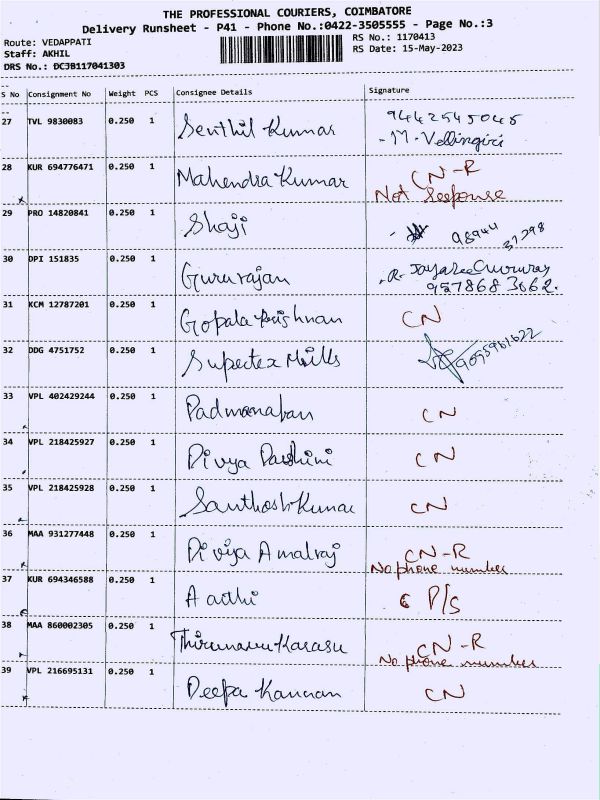 THE PROFESSIONAL COURIERS, COIMBATORE
Delivery Runsheet - P41 - Phone No.:0422-3505555 - Page No.:3
Route: VEDAPPATI
RS No.: 1170413
Staff: AKHIL
RS Date: 15-May-2023
DRS No.: DCJB117041303
S No Consignment No Weight PCS Consignee Details Signature
27 TVL 9830083 0.250 1 Senthil Kumar 9442545045
- M. Vellingiri
28 KUR 694776471 0.250 1 Mahendra Kumar CN-R
Not Response
29 PRO 14820841 0.250 1 Shaji - 98944 37298
30 DPI 151835 0.250 1 Gururajan
957868 3062.
31 KCM 12787201 0.250 1 Gopala Krishnan CN
32 DDG 4751752 0.250 1 Supertex Mills 9095961622
33 VPL 402429244 0.250 1 Padmanaban CN
34 VPL 218425927 0.250 1 Divya Darshini CN
35 VPL 218425928 0.250 1 Santhosh Kumar CN
36 MAA 931277448 0.250 1 Divija Amalraj CN-R
No phone number
37 KUR 694346588 0.250 1 Aarthi P/S
38 MAA 860002305 0.250 1 Thirunavu Karasu CN-R
No phone number
39 VPL 216695131 0.250 1 Deepa Kannan CN